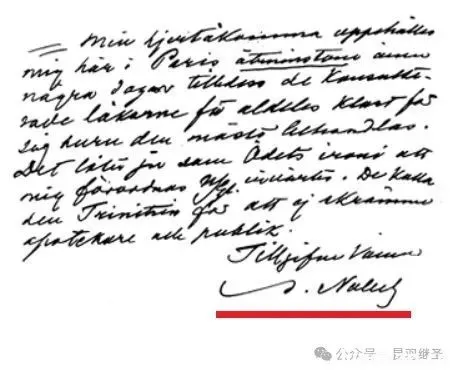 Min hjertåkomma uppehålles
mig här i Paris åtminstone ännu
några dagar tilldess de Konsulte-
rade läkarne få aldeles klart för
sig huru den måste behandlas.
Det låter ju som ödets ironi att
mig förordnas N/gl. invärtes. De kalla
den Trinitrin för att ej skrämma
apotekare och publik.
Tillgifne Vännen
A. Nobel
公众号 · 昆羽继圣